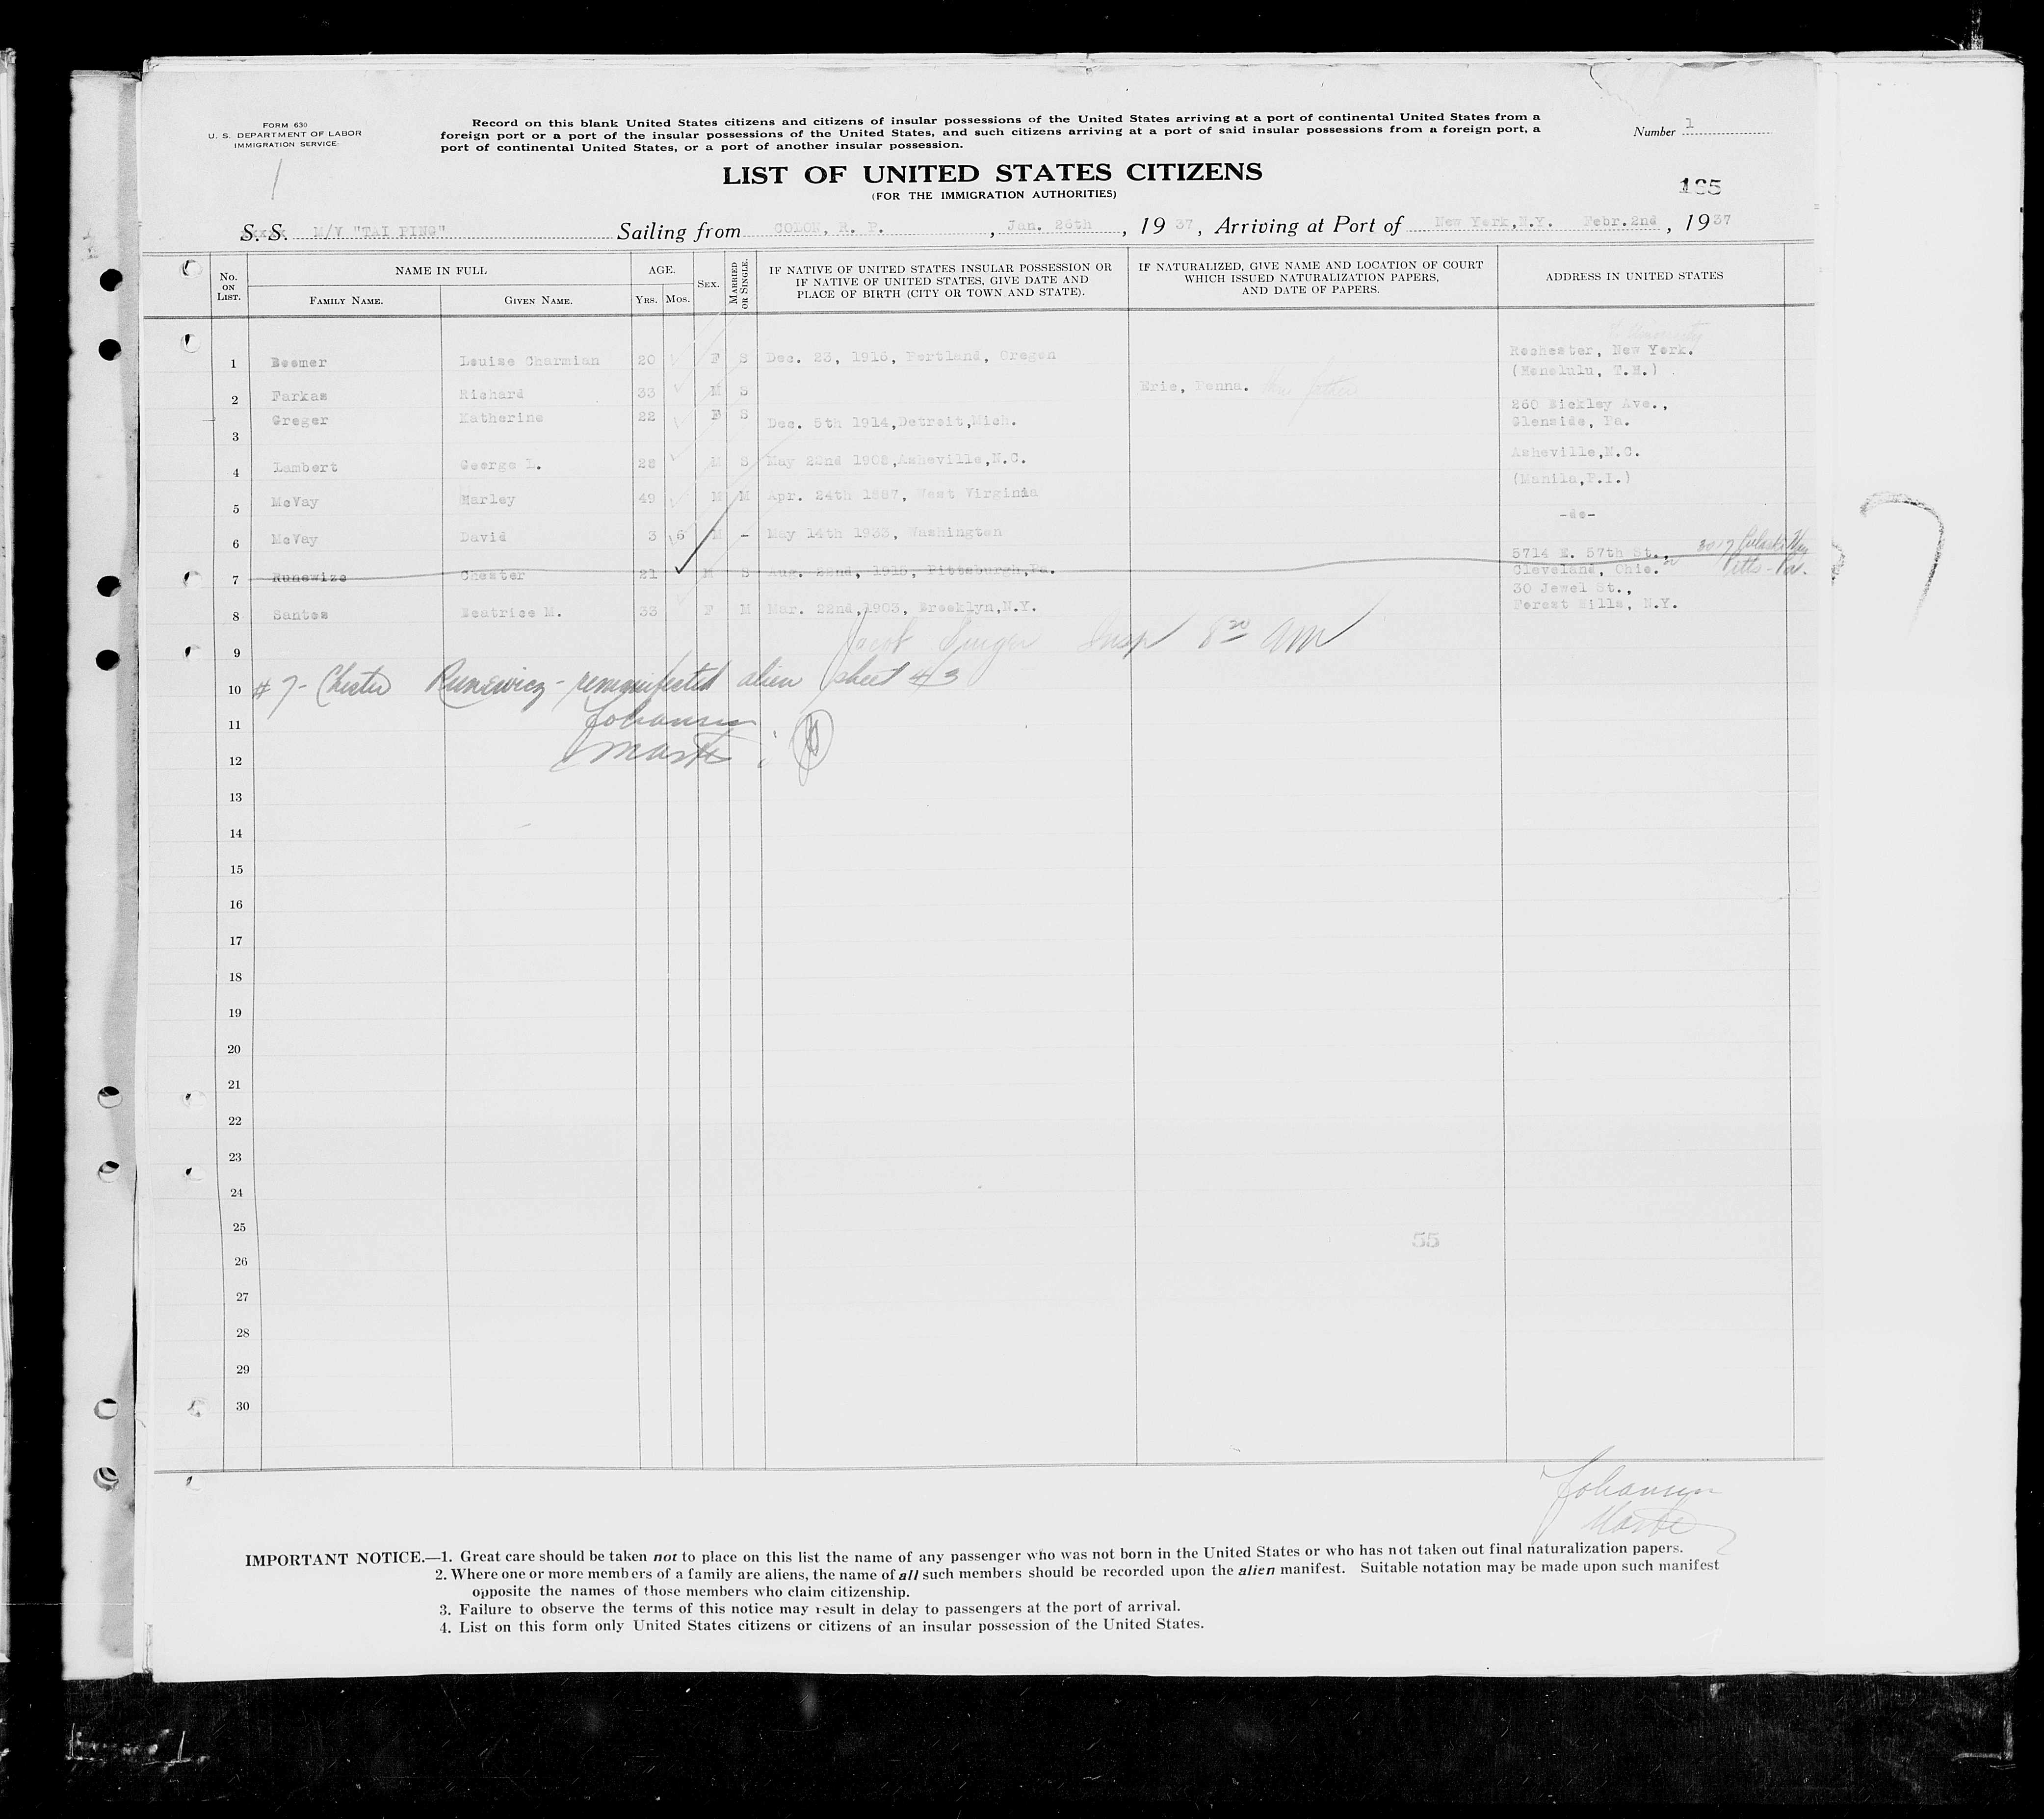 FORM 630
U. S. DEPARTMENT OF LABOR
IMMIGRATION SERVICE
1
Record on this blank United States citizens and citizens of insular possessions of the United States arriving at a port of continental United States from a
foreign port or a port of the insular possessions of the United States, and such citizens arriving at a port of said insular possessions from a foreign port, a
port of continental United States, or a port of another insular possession.
Number 1
LIST OF UNITED STATES CITIZENS
(FOR THE IMMIGRATION AUTHORITIES)
185
S. S. M/V "TAI PING" Sailing from COLON, R. P., Jan. 26th, 1937, Arriving at Port of New York, N.Y. Febr. 2nd, 1937
No. ON LIST. NAME IN FULL FAMILY NAME. GIVEN NAME. AGE. YRS. MOS. SEX. MARRIED OR SINGLE. IF NATIVE OF UNITED STATES INSULAR POSSESSION OR IF NATIVE OF UNITED STATES, GIVE DATE AND PLACE OF BIRTH (CITY OR TOWN AND STATE). IF NATURALIZED, GIVE NAME AND LOCATION OF COURT WHICH ISSUED NATURALIZATION PAPERS, AND DATE OF PAPERS. ADDRESS IN UNITED STATES
1 Beemer Louise Charmian 20 F S Dec. 23, 1916, Portland, Oregon Rochester, New York.
(Honolulu, T.H.)
2 Farkas Richard 33 M S Erie, Penna. thru father
260 Bickley Ave.,
Greger Katherine 22 F S Dec. 5th 1914, Detroit, Mich. Glenside, Pa.
3
4 Lambert George L. 28 M S May 22nd 1908, Asheville, N.C. Asheville, N.C.
(Manila, P.I.)
5 McVay Harley 49 M M Apr. 24th 1887, West Virginia
-do-
6 McVay David 3 6 M - May 14th 1933, Washington
5714 E. 57th St., 3017 Pulaski Way
7 Runewize Chester 21 M S Aug. 22nd, 1915, Pittsburgh, Pa. Cleveland, Ohio. Pitts-Pa.
30 Jewel St.,
8 Santos Beatrice M. 33 F M Mar. 22nd, 1903, Brooklyn, N.Y. Forest Hills, N.Y.
Jacob Singer Insp 8 20 AM
9
10 # 7 - Chester Runewicz - remanifested alien sheet #3
11 Johansen
12
13
14
15
16
17
18
19
20
21
22
23
24
25
55
26
27
28
29
30
Johansen
IMPORTANT NOTICE.—1. Great care should be taken not to place on this list the name of any passenger who was not born in the United States or who has not taken out final naturalization papers.
2. Where one or more members of a family are aliens, the name of all such members should be recorded upon the alien manifest. Suitable notation may be made upon such manifest
opposite the names of those members who claim citizenship.
3. Failure to observe the terms of this notice may result in delay to passengers at the port of arrival.
4. List on this form only United States citizens or citizens of an insular possession of the United States.